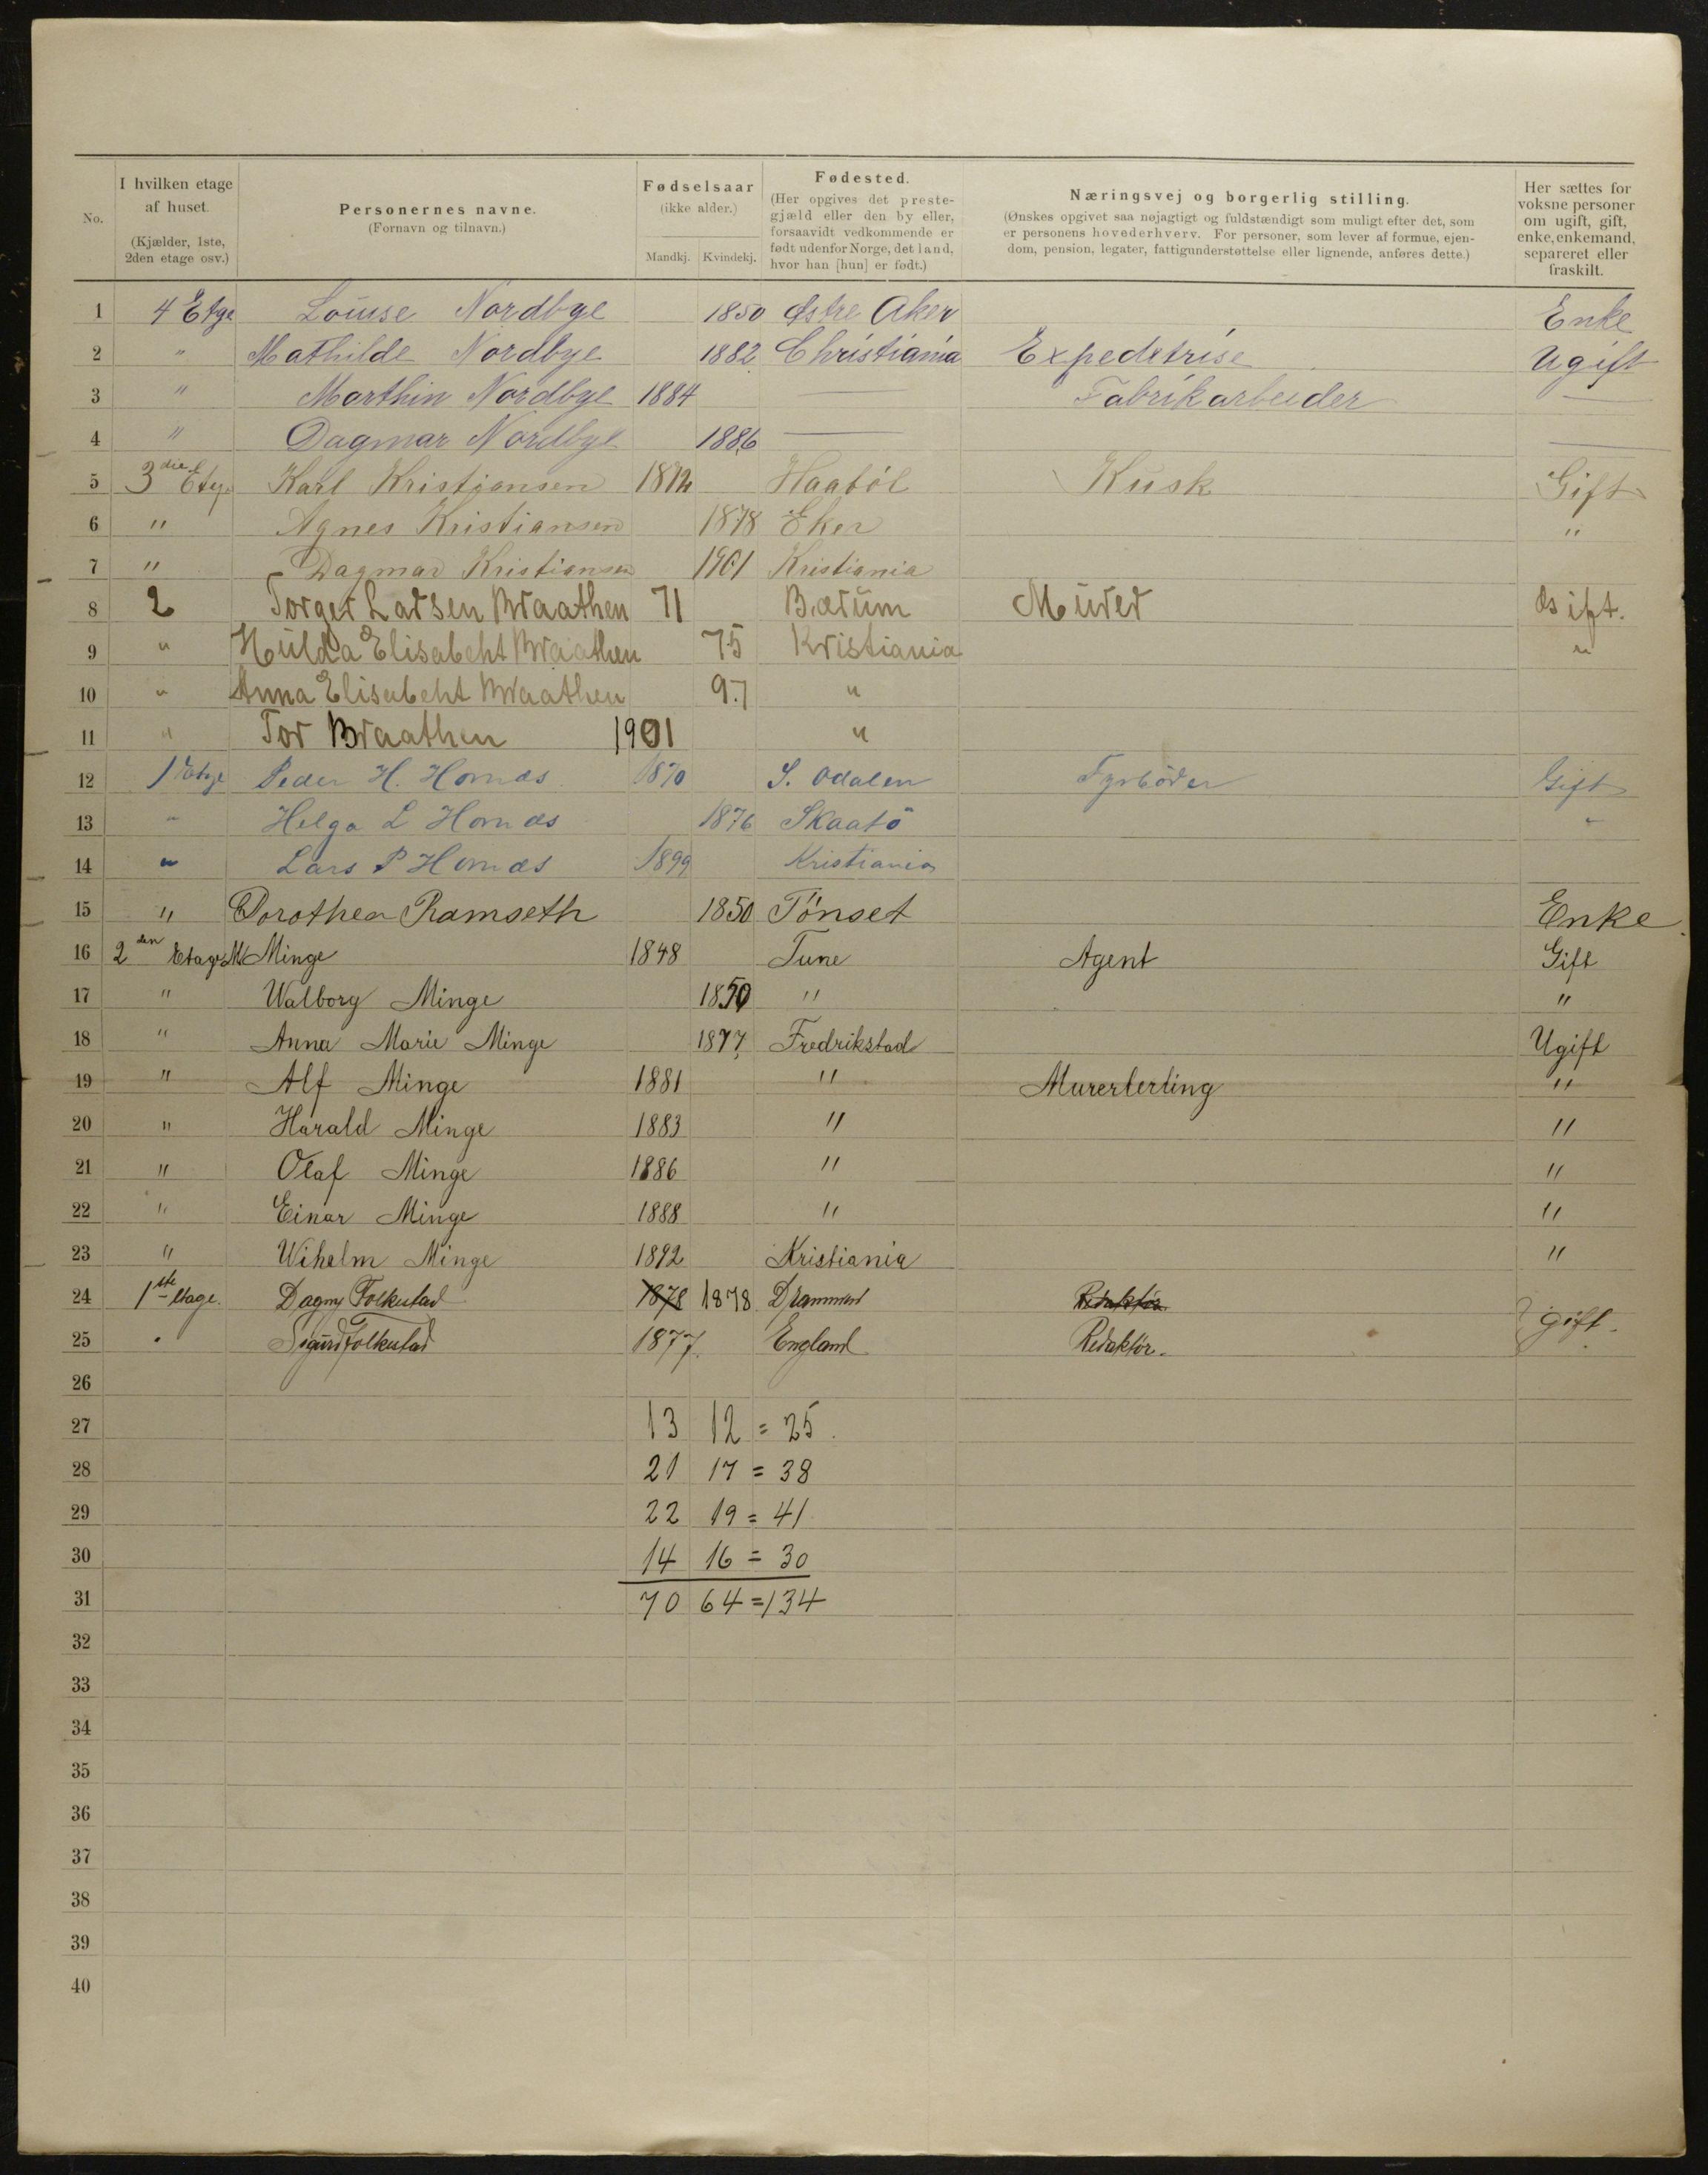 No.
I hvilken etage af huset.
(Kjælder, 1ste, 2den etage osv.)
Personernes navne.
(Fornavn og tilnavn.)
Fødselsaar
(ikke alder.)
Mandkj. Kvindekj.
Fødested.
(Her opgives det prestegjæld eller den by eller, forsaavidt vedkommende er født udenfor Norge, det land, hvor han [hun] er født.)
Næringsvej og borgerlig stilling.
(Ønskes opgivet saa nøjagtigt og fuldstændigt som muligt efter det, som er personens hovederhverv. For personer, som lever af formue, ejendom, pension, legater, fattigunderstøttelse eller lignende, anføres dette.)
Her sættes for voksne personer om ugift, gift, enke, enkemand, separeret eller fraskilt.
1 4 Etge Louise Nordbye 1850 Østre Aker Enke
2 " Mathilde Nordbye 1882 Christiania Expedetrise Ugift
3 " Marthin Nordbye 1884 — Fabrikarbeider —
4 " Dagmar Nordbye 1886 — —
5 3die Etge Karl Kristiansen 1872 Haaböl Kusk Gift
6 " Agnes Kristiansen 1878 Eker "
7 " Dagmar Kristiansen 1901 Kristiania
8 2 Torger Larsen Braathen 71 Bærum Murer Gift.
9 " Hulda Elisabeht Braathen 75 Kristiania "
10 " Anna Elisabeht Braathen 97 "
11 " Tor Braathen 1901 "
12 1 Etge Peder H. Hornæs 1870 S. Odalen Fyrböder Gift
13 " Helga L Hornæs 1876 Skaatö "
14 " Lars P Hornæs 1899 Kristiania
15 " Dorothea Ramseth 1850 Tönset Enke.
16 2den Etage M Minge 1848 Tune Agent Gift
17 " Walborg Minge 1850 " "
18 " Anna Marie Minge 1877 Fredrikstad Ugift
19 " Alf Minge 1881 " Murerlerling "
20 " Harald Minge 1883 " "
21 " Olaf Minge 1886 " "
22 " Einar Minge 1888 " "
23 " Wihelm Minge 1892 Kristiania "
24 1ste Etage. Dagny Folkestad 1878 1878 Drammen Redaktør gift.
25 " Sigurd Folkestad 1877. England Redaktør.
26
27 13 12 = 25.
28 21 17 = 38
29 22 19 = 41
30 14 16 = 30
31 70 64 = 134
32
33
34
35
36
37
38
39
40